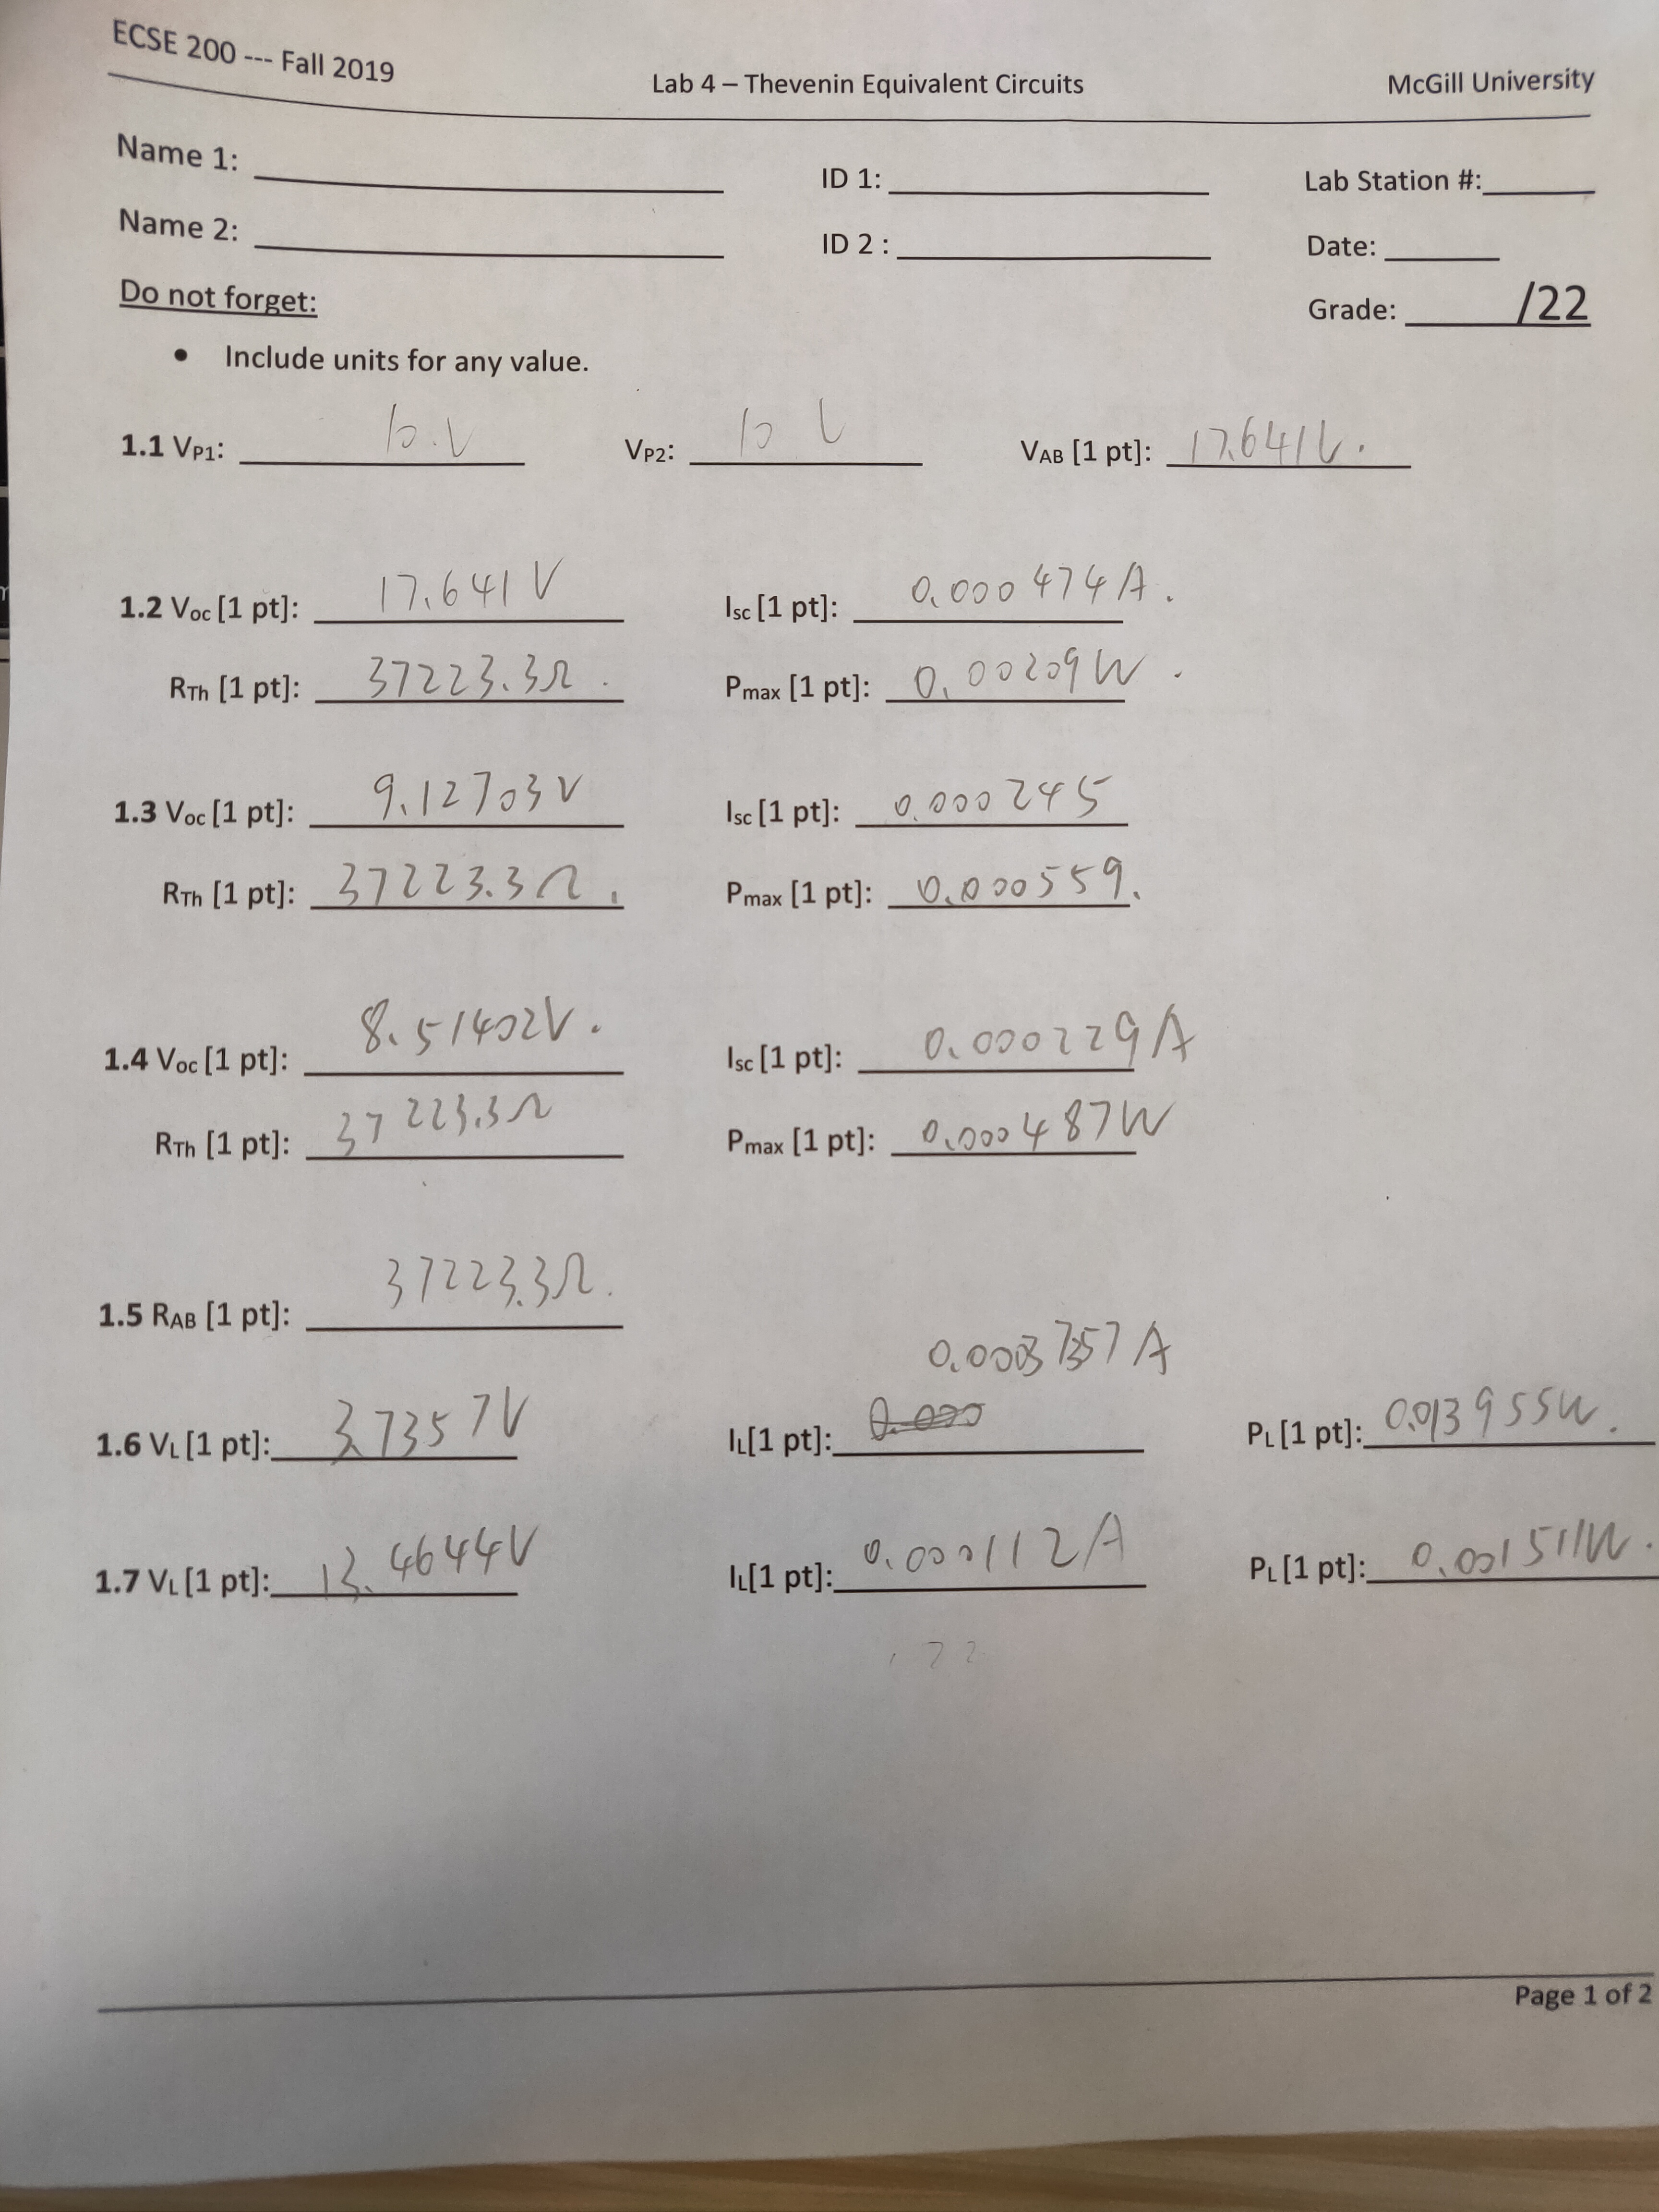 ECSE 200 --- Fall 2019 Lab 4 – Thevenin Equivalent Circuits McGill University
Name 1: ID 1: Lab Station #:
Name 2: ID 2 : Date:
Do not forget: Grade: /22
• Include units for any value.
1.1 VP1: 10.V VP2: 10 V VAB [1 pt]: 17.641V.
1.2 Voc [1 pt]: 17.641 V Isc [1 pt]: 0.000474A.
RTh [1 pt]: 37223.3Ω. Pmax [1 pt]: 0.00209W.
1.3 Voc [1 pt]: 9.12703V Isc [1 pt]: 0.000245
RTh [1 pt]: 37223.3Ω. Pmax [1 pt]: 0.000559.
1.4 Voc [1 pt]: 8.51402V. Isc [1 pt]: 0.000229A
RTh [1 pt]: 37223.3Ω Pmax [1 pt]: 0.000487W
1.5 RAB [1 pt]: 37223.3Ω.
0.00037357A
1.6 VL [1 pt]: 3.7357V IL[1 pt]: PL [1 pt]: 0.013955W.
1.7 VL [1 pt]: 13.4644V IL[1 pt]: 0.000112A PL [1 pt]: 0.001511W.
Page 1 of 2